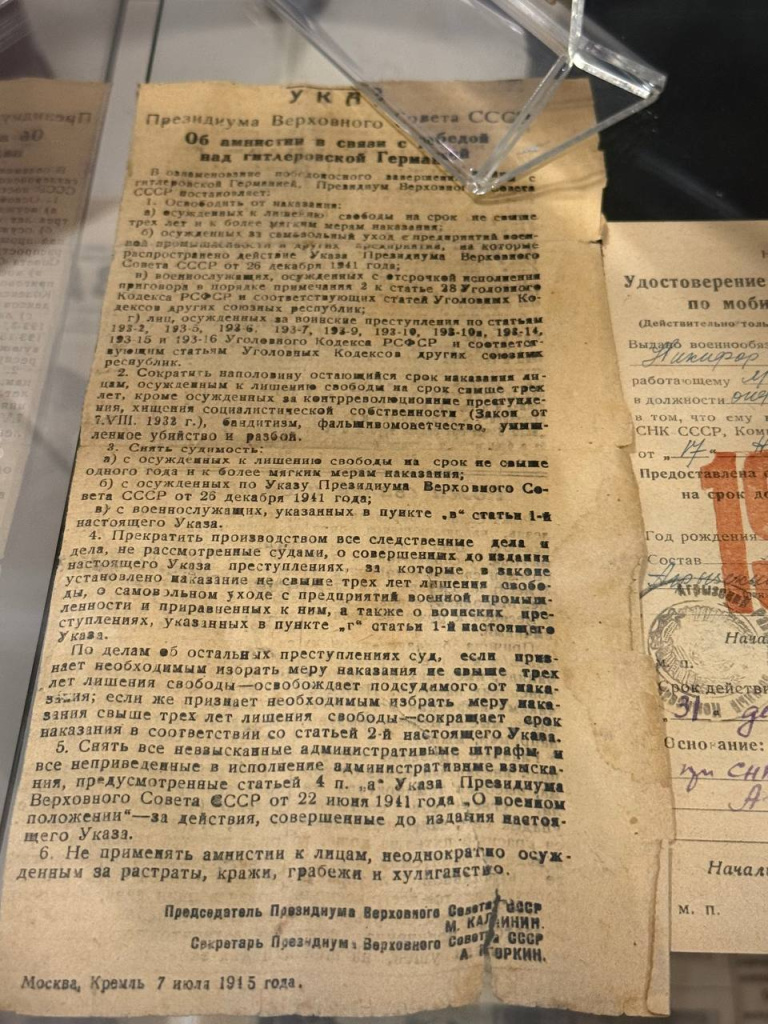 УКАЗ
Президиума Верховного Совета СССР
Об амнистии в связи с победой
над гитлеровской Германией
В ознаменование победоносного завершения войны с
гитлеровской Германией, Президиум Верховного Совета
СССР постановляет:
1. Освободить от наказания:
а) осужденных к лишению свободы на срок не свыше
трех лет и к более мягким мерам наказания;
б) осужденных за самовольный уход с предприятий воен-
ной промышленности и других предприятий, на которые
распространено действие Указа Президиума Верховного
Совета СССР от 26 декабря 1941 года;
в) военнослужащих, осужденных с отсрочкой исполнения
приговора в порядке примечания 2 к статье 28 Уголовного
Кодекса РСФСР и соответствующих статей Уголовных Ко-
дексов других союзных республик;
г) лиц, осужденных за воинские преступления по статьям
193-2, 193-5, 193-6, 193-7, 193-9, 193-10, 193-10а, 193-14,
193-15 и 193-16 Уголовного Кодекса РСФСР и соответст-
вующим статьям Уголовных Кодексов других союзных
республик.
2. Сократить наполовину остающийся срок наказания ли-
цам, осужденным к лишению свободы на срок свыше трех
лет, кроме осужденных за контрреволюционные преступле-
ния, хищения социалистической собственности (Закон от
7.VIII. 1932 г.), бандитизм, фальшивомонетчество, умыш-
ленное убийство и разбой.
3. Снять судимость:
а) с осужденных к лишению свободы на срок не свыше
одного года и к более мягким мерам наказания;
б) с осужденных по Указу Президиума Верховного Со-
вета СССР от 26 декабря 1941 года;
в) с военнослужащих, указанных в пункте „в" статьи 1-й
настоящего Указа.
4. Прекратить производством все следственные дела и
дела, не рассмотренные судами, о совершенных до издания
настоящего Указа преступлениях, за которые в законе
установлено наказание не свыше трех лет лишения свобо-
ды, о самовольном уходе с предприятий военной промыш-
ленности и приравненных к ним, а также о воинских пре-
ступлениях, указанных в пункте „г" статьи 1-й настоящего
Указа.
По делам об остальных преступлениях суд, если приз-
нает необходимым избрать меру наказания не свыше трех
лет лишения свободы—освобождает подсудимого от нака-
зания; если же признает необходимым избрать меру нака-
зания свыше трех лет лишения свободы—сокращает срок
наказания в соответствии со статьей 2-й настоящего Указа.
5. Снять все невзысканные административные штрафы и
все неприведенные в исполнение административные взыска-
ния, предусмотренные статьей 4 п. „а" Указа Президиума
Верховного Совета СССР от 22 июня 1941 года „О военном
положении"—за действия, совершенные до издания настоя-
щего Указа.
6. Не применять амнистии к лицам, неоднократно осуж-
денным за растраты, кражи, грабежи и хулиганство.
Председатель Президиума Верховного Совета СССР
М. КАЛИНИН.
Секретарь Президиума Верховного Совета СССР
А. ГОРКИН.
Москва, Кремль 7 июля 1945 года.
Удостоверение
по моби
(Действительно тольк
Выдано военнообяз
Никифор
работающему
в должности
в том, что ему
СНК СССР, Ком
от „17"
Предоставлена
на срок до
Год рождения
Состав
Нача
м. п.
Срок действи
31 де
Основание:
при СНК
Начал
м. п.